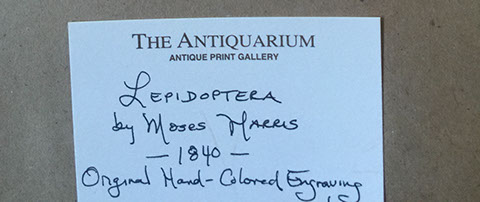 THE ANTIQUARIUM
ANTIQUE PRINT GALLERY
LEPIDOPTERA
by Moses HARRIS
— 1840 —
Original Hand-Colored Engraving